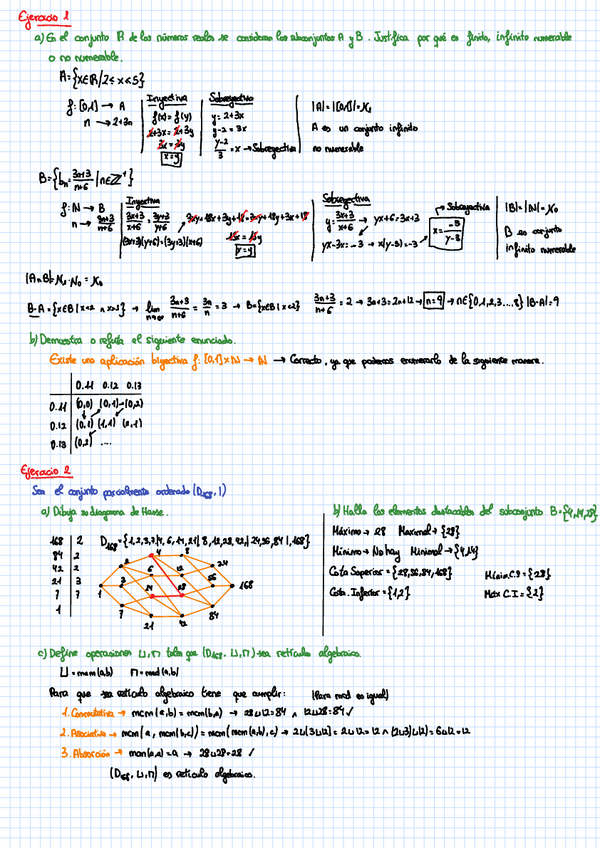 Ejercicio 1
a) En el conjunto R de los números reales se consideran los subconjuntos A y B. Justifica por qué es finito, infinito numerable
o no numerable.
A={x∈R/2≤x<5}
f:[0,1) → A
n → 2+3n
Inyectiva
f(x)=f(y)
2+3x=2+3y
3x=3y
x=y
Sobreyectiva
y=2+3x
y-2=3x
y-2/3=x → Sobreyectiva
|A|=|[0,1)|=ℵ₁
A es un conjunto infinito
no numerable
B={bn=3n+3/n+6 | n∈Z⁺}
f:N → B
n → 3n+3/n+6
Inyectiva
3x+3/x+6=3y+3/y+6
(3x+3)(y+6)=(3y+3)(x+6)
3xy+18x+3y+18=3xy+18y+3x+18
15x=15y
x=y
Sobreyectiva
y=3x+3/x+6 → yx+6y=3x+3
yx-3x=-3 → x(y-3)=-3 →
Sobreyectiva
x=-3/y-3
|B|=|N|=ℵ₀
B es conjunto
infinito numerable
|A∩B|=ℵ₁·ℵ₀=ℵ₀
B-A={x∈B | x<2 ∧ x>5} → lim n→∞ 3n+3/n+6=3n/n=3 → B={x∈B | x<2} 3n+3/n+6=2 → 3n+3=2n+12 → n=9 → n∈{0,1,2,3,...,8} |B-A|=9
b) Demuestra o refuta el siguiente enunciado.
Existe una aplicación biyectiva f:[0,1]×N → N → Correcto, ya que podemos enumerarlo de la siguiente manera.
0.11 0.12 0.13
0.11 (0,0) (0,1) (0,2)
0.12 (0,1) (1,1) (2,1)
0.13 (0,2) ...
Ejercicio 2
Sea el conjunto parcialmente ordenado (D168, |)
a) Dibuja su diagrama de Hasse.
168 2
84 2
42 2
21 3
7 7
1
D168={1,2,3,7|4,6,14,21|8,12,28,42|24,56,84|,168}
1 2 3 7 4 6 14 21 8 12 28 42 24 56 84 168
b) Halla los elementos destacables del subconjunto B={4,14,28}.
Máximo → 28 Maximal → {28}
Mínimo → No hay Minimal → {4,14}
Cota Superior={28,56,84,168} Mínim.C.S={28}
Cota Inferior={1,2} Máx C.I={2}
c) Define operaciones ⊔,⊓ tales que (D168,⊔,⊓) sea retículo algebraico.
⊔=mcm(a,b) ⊓=mcd(a,b)
Para que sea retículo algebraico tiene que cumplir: (Para mcd es igual)
1. Conmutativa → mcm(a,b)=mcm(b,a) → 28⊔12=84 ∧ 12⊔28=84 ✓
2. Asociativa → mcm(a,mcm(b,c))=mcm(mcm(a,b),c) → 2⊔(3⊔12)=2⊔12=12 ∧ (2⊔3)⊔12)=6⊔12=12
3. Absorción → mcm(a,a)=a → 28⊔28=28 ✓
(D168,⊔,⊓) es retículo algebraico.